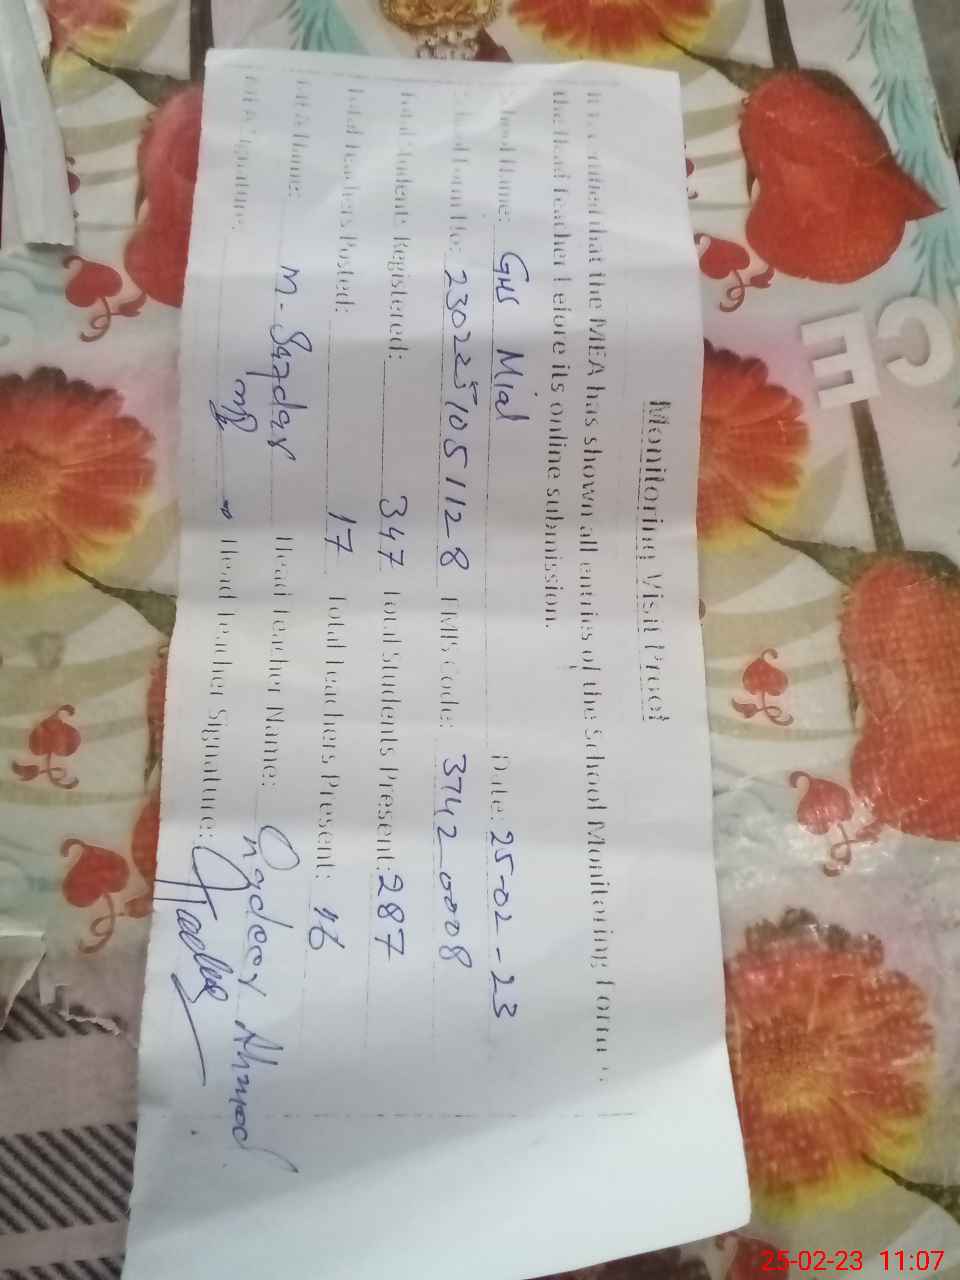 Monitoring Visit Proof
that the MEA has shown all entries of the School Monitoring Form
the Head Teacher before its online submission.
School Name: GHS Mial Date: 25-02-23
2302251051128 EMIS Code: 37420008
Total Students Registered: 347 Total Students Present: 287
Total Teachers Posted: 17 Total Teachers Present: 16
MEA Name: M. Safdar Head Teacher Name: Ahmed
MEA Signature: Head Teacher Signature:
CE
25-02-23 11:07